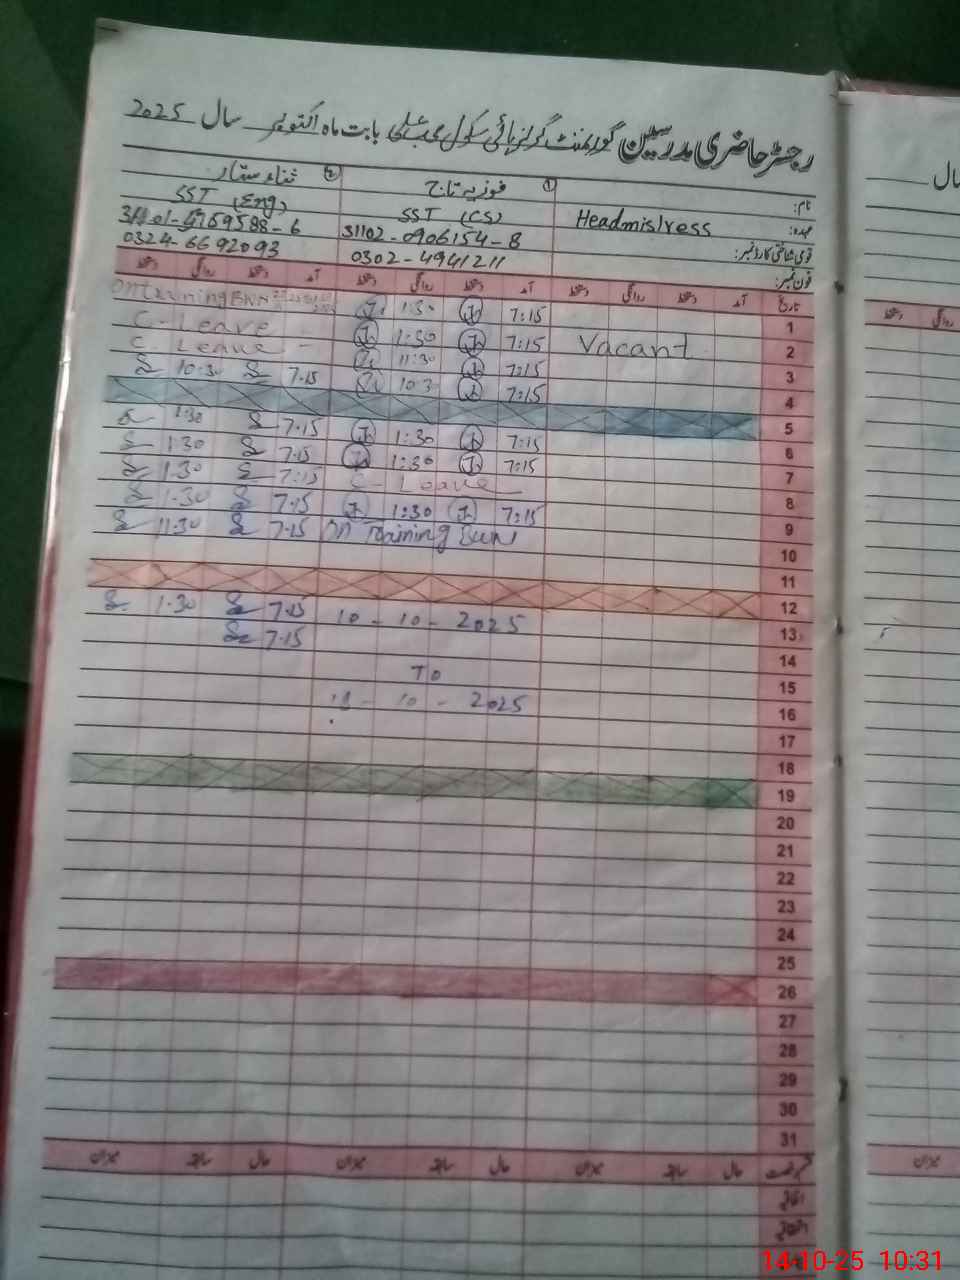 رجسٹر حاضری مدرسین گورنمنٹ گرلز ہائی سکول محب علی بابت ماہ اکتوبر سال 2025
نام: ① فوزیہ تاج ② ثناء ستار
عہدہ: Headmistress SST (CS) SST (Eng)
قومی شناختی کارڈ نمبر: 31102-0906154-8
فون نمبر: 0302-4941211 0324-6692093
تاریخ آمد دستخط روانگی دستخط آمد دستخط روانگی دستخط آمد دستخط روانگی دستخط
1 7:15 1:30 On Training BWN
2 Vacant 7:15 1:30 C. Leave -
3 7:15 11:30 C. Leave -
4 7:15 10:3 7.15 10:30
5
6 7:15 1:30 7.15 1:30
7 7:15 1:30 7.15 1.30
8 C- Leave 7:15 1.30
9 7:15 1:30 7.15 1.30
10 On Training BWN 7.15 11:30
11
12
13 10 - 10 - 2025 7.15 1.30
14 7.15
15 TO
16 - 10 - 2025
17
18
19
20
21
22
23
24
25
26
27
28
29
30
31
رخصت حال سابقہ میزان حال سابقہ میزان حال سابقہ میزان
اتفاقیہ
سال
دستخط روانگی
میزان
14-10-25 10:31